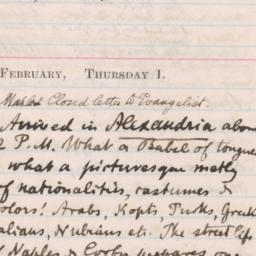 FEBRUARY, THURSDAY 1.
Mailed Closed letter to Evangelist.
Arrived in Alexandria abou
2 P.M. What a Babel of tongue
what a picturesque motly
of nationalities, costumes &
colors! Arabs, Kopts, Turks, Greek
alians, Nubians etc. The street life
Naples &